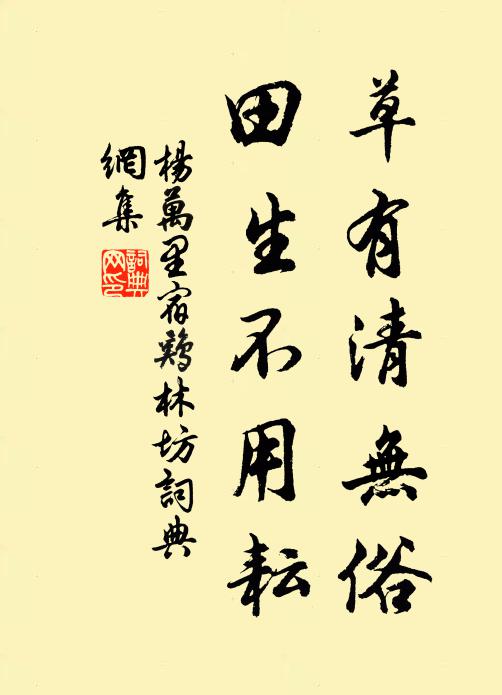 草有清無俗
田生不用耘
楊萬里宿鷄林坊詞典
網集
詞典网印